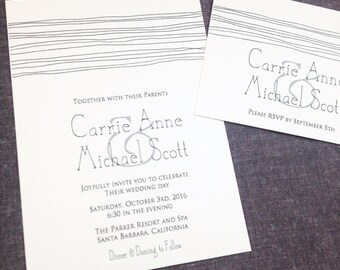 Together with their Parents
Carrie Anne
&
Michael Scott
Joyfully invite you to celebrate
Their wedding day
Saturday, October 3rd, 2016
6:30 in the evening
The Parker Resort and Spa
Santa Barbara, California
Dinner & Dancing to Follow
Carrie Anne
&
Michael Scott
Please RSVP by September 5th